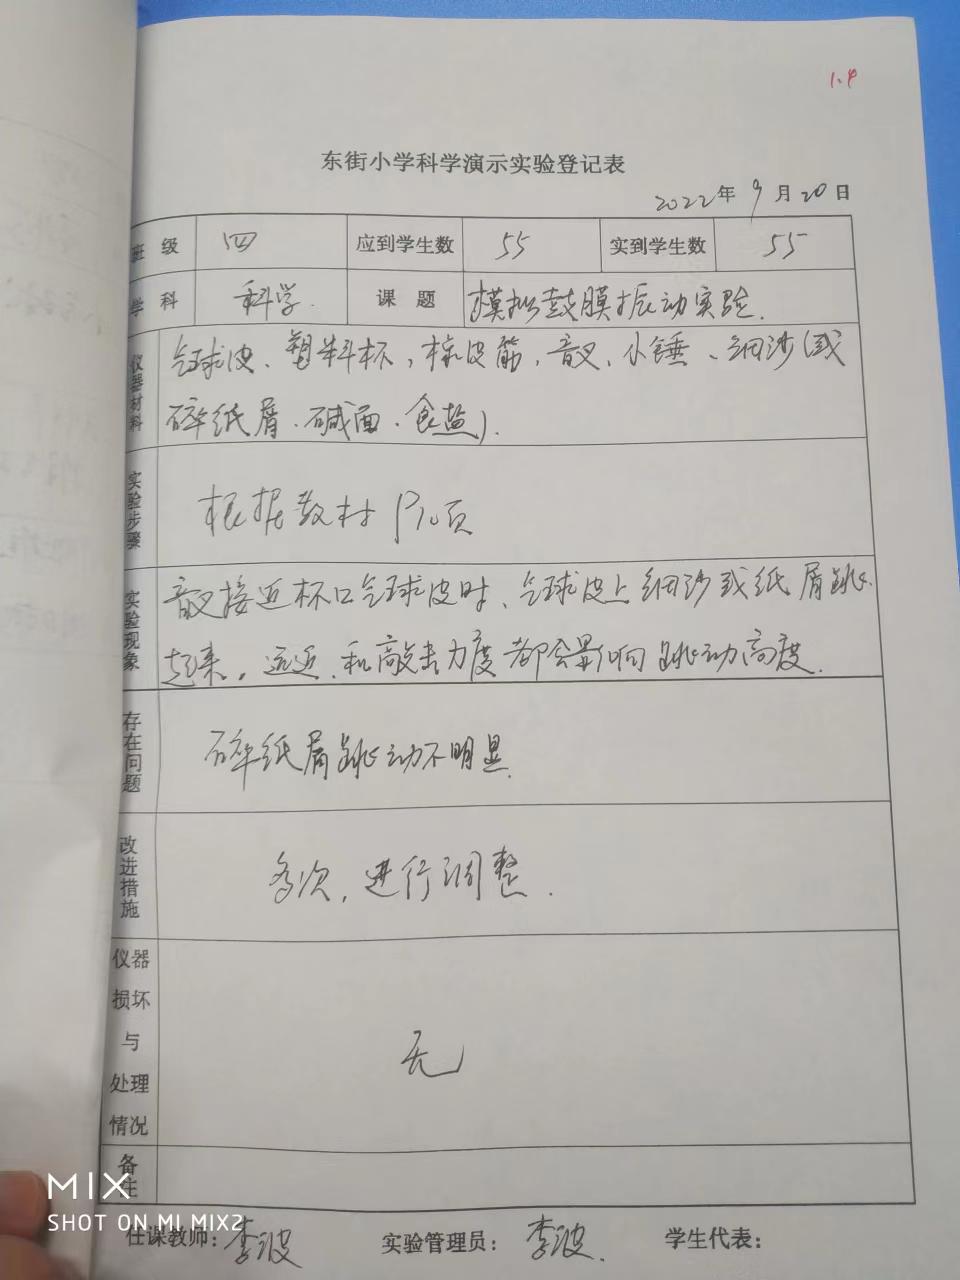 1.4
东街小学科学演示实验登记表
2022年9月20日
班 级 四 应到学生数 55 实到学生数 55
学 科 科学. 课 题 模拟鼓膜振动实验.
仪器材料 气球皮、塑料杯,橡皮筋,音叉、小锤、细沙(或
碎纸屑.碱面.食盐).
实验步骤 根据教材P10页
实验现象 音叉接近杯口气球皮时、气球皮上细沙或纸屑跳
起来。远近、和敲击力度都会影响跳动高度.
存在问题 碎纸屑跳动不明显.
改进措施 多次,进行调整.
仪器
损坏
与
处理
情况
无
备注
MIX
SHOT ON MI MIX2
任课教师:李波 实验管理员:李波. 学生代表: